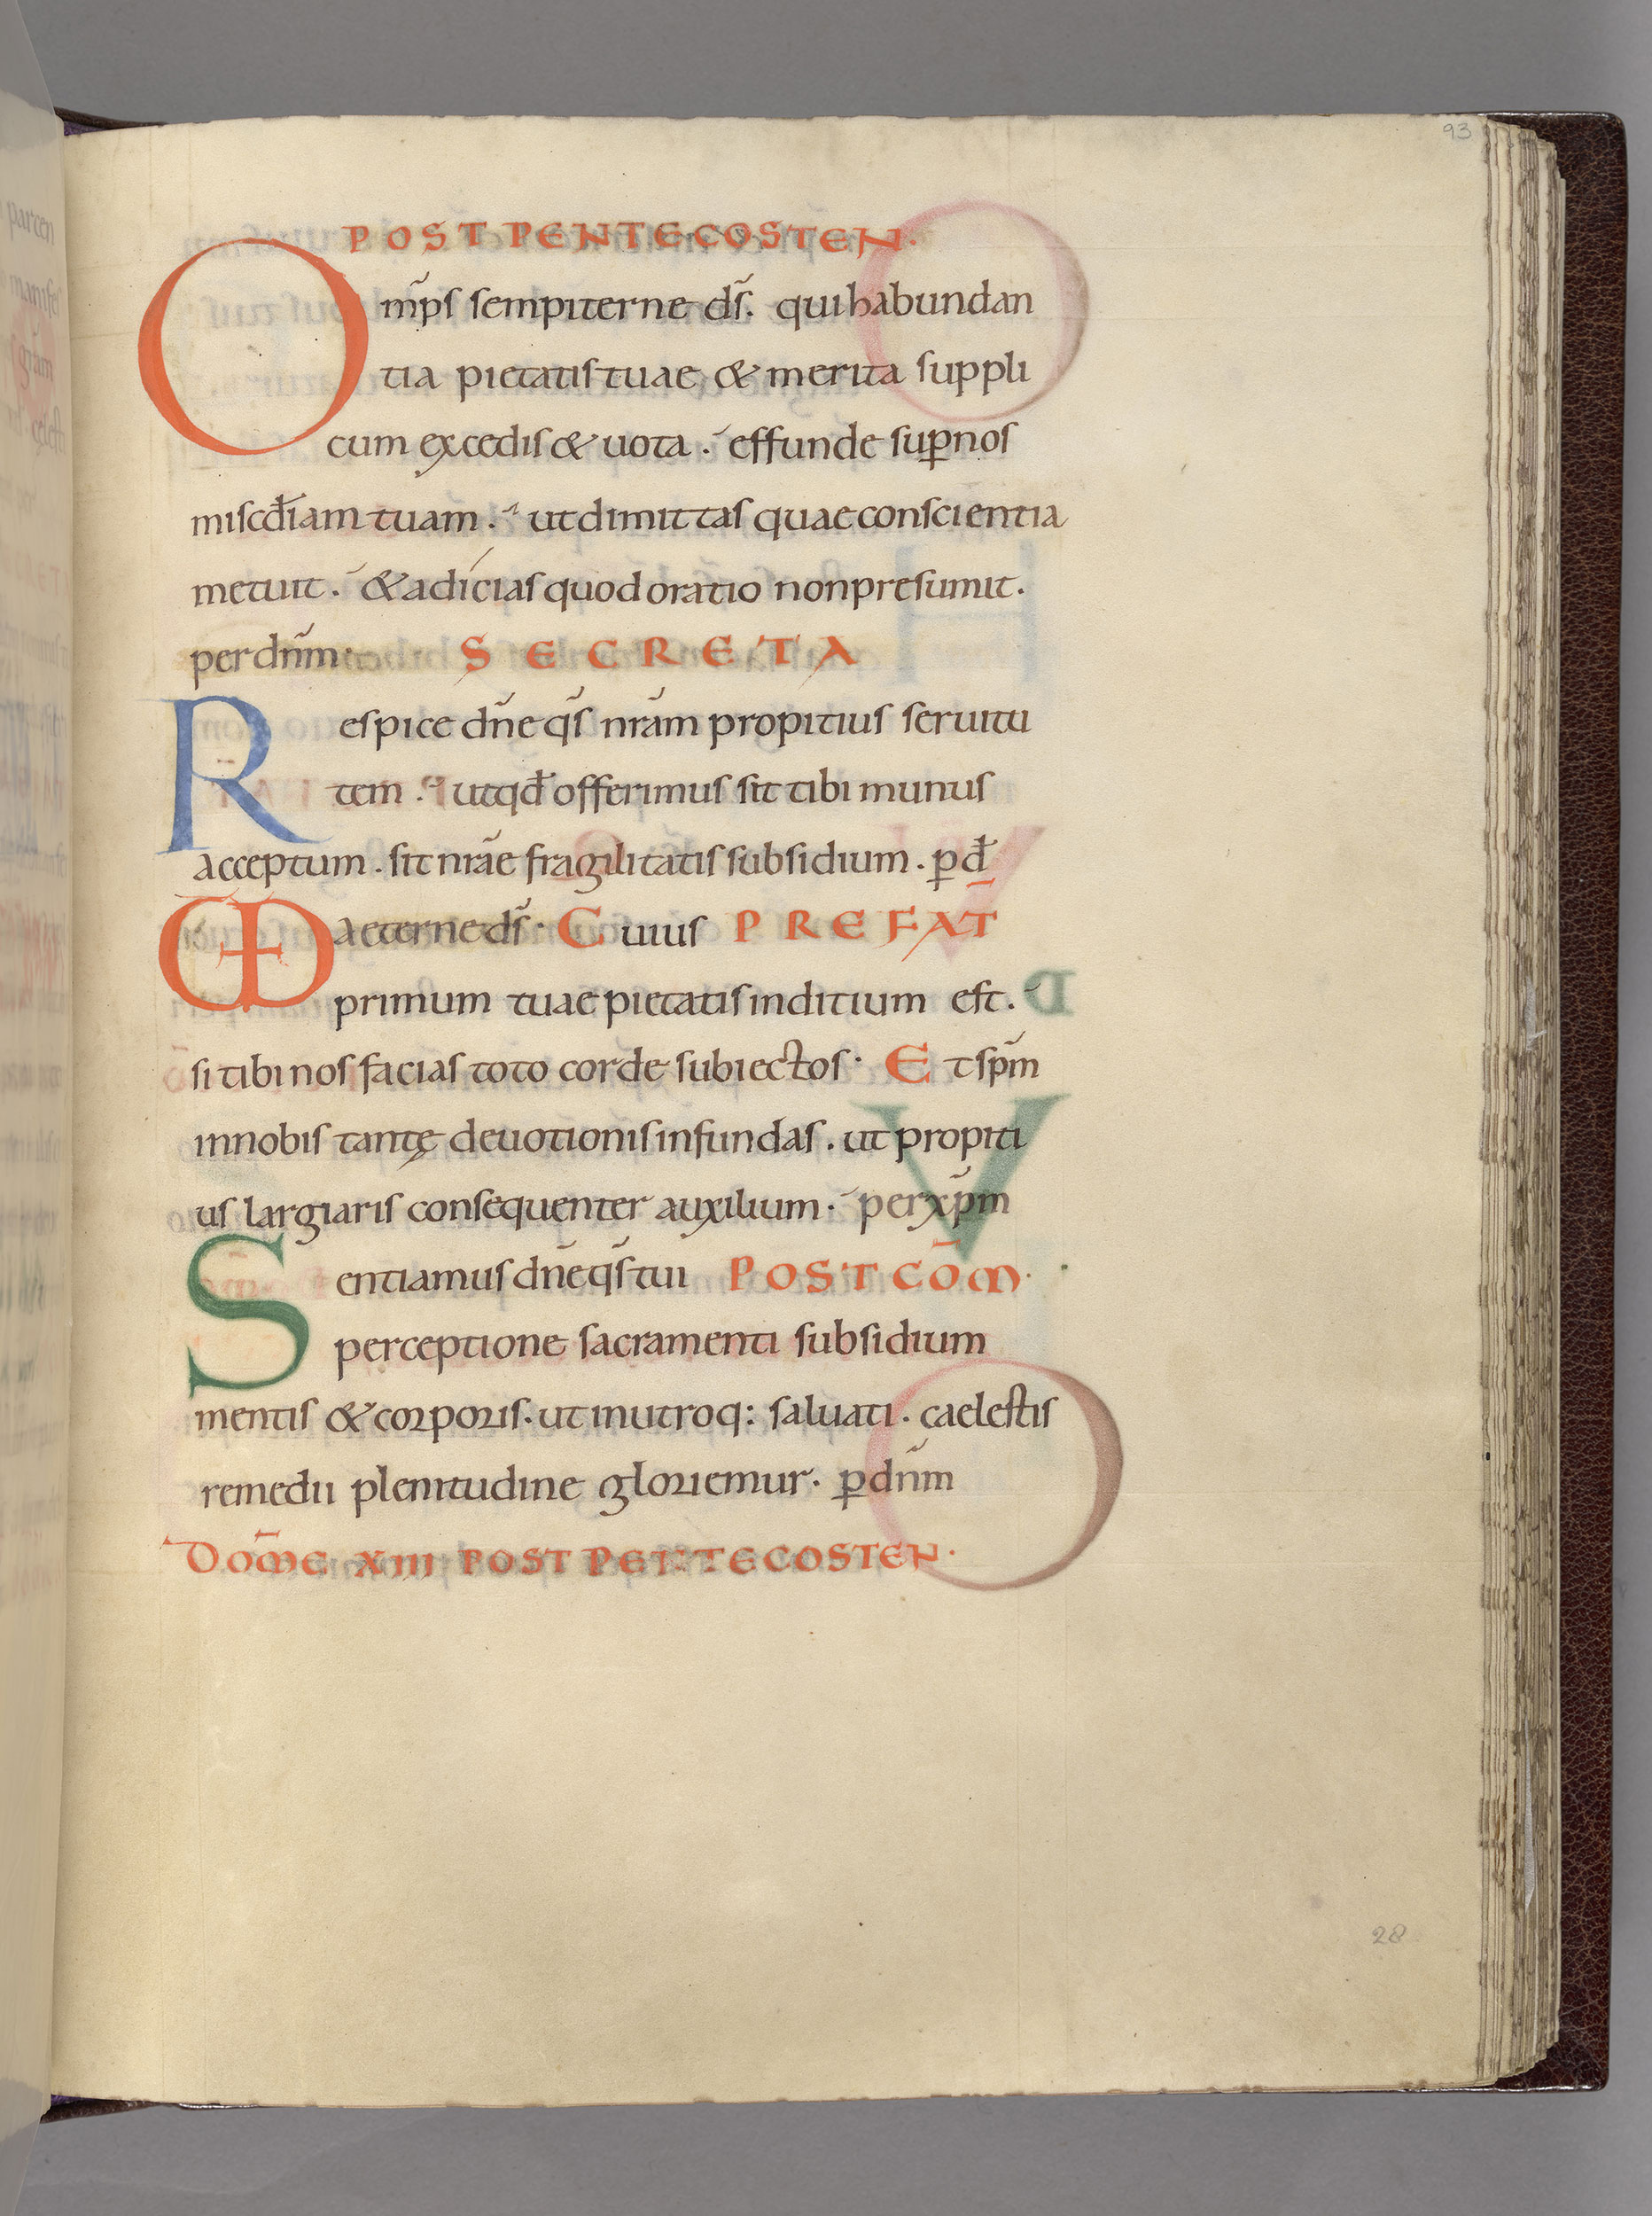 93
POST PENTECOSTEN.
Om̅ps sempiterne ds̅. qui habundan
tia pietatis tuae & merita suppli
cum excedis & uota. effunde sup̱ nos
miscd̅iam tuam. ut dimittas quae conscientia
metuit. & adícias quod oratio non presumit.
per dn̅m. SECRETA
Respice dn̅e qs̅ nr̅am propitius seruitu
tem. ut qd̅ offerimus sit tibi munus
acceptum. sit nr̅ae fragilitatis subsidium. p̱ d̅
VD aeterne ds̅. Cuius PREFAT̅
primum tuae pietatis inditium est.
si tibi nos facias toto corde subiectos. Et sp̅m
in nobis tantę deuotionis infundas. ut propiti
us largiaris consequenter auxilium. per xp̅m
Sentiamus dn̅e qs̅ tui POST CO̅M.
perceptione sacramenti subsidium
mentis & corporis. ut in utroq: saluati. caelestis
remedii plenitudine gloriemur. p̱ dn̅m
DOM̅E XIII POST PENTECOSTEN.
28